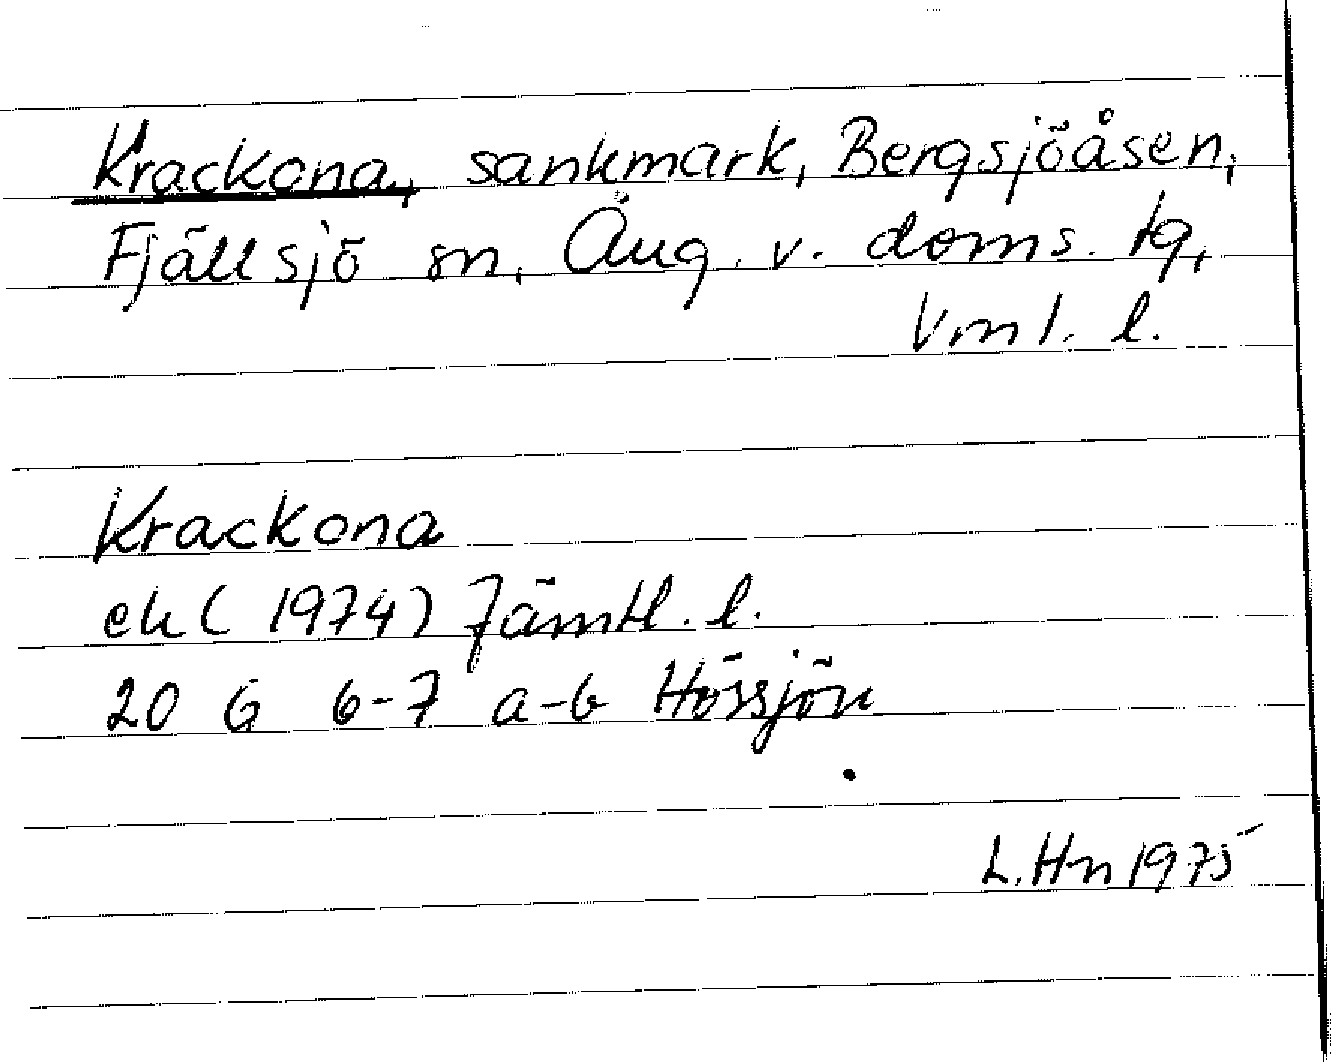 Krackona, sankmark, Bergsjöåsen,
Fjällsjö sn, Ång. v. doms. tg,
Vrnl. l.
Krackona
ek (1974) Jämtl. l.
20 G 6-7 a-b Hössjön
L. Hn 1975